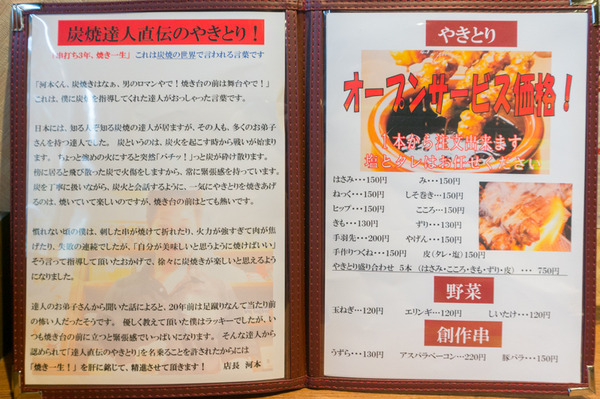 炭焼達人直伝のやきとり！
「串打ち3年、焼き一生」これは炭焼の世界で言われる言葉です
「河本くん、炭焼きはなぁ、男のロマンやで！焼き台の前は舞台やで！」
これは、僕に炭焼を指導してくれた達人がおっしゃった言葉です。
日本には、知る人ぞ知る炭焼の達人が居ますが、その人も、多くのお弟子
さんを持つ達人でした。 炭というのは、炭火を起こす時から戦いが始まりま
す。 ちょっと強めの火にすると突然「パチッ！」っと炭が砕け散ります。
傍に居ると飛び散った炭で火傷をしますから、常に緊張感を持っています。
炭を丁寧に扱いながら、炭火と会話するように、一気にやきとりを焼きあげ
るのは、焼いていて楽しいのですが、焼き台の前はとても熱いです。
慣れない頃の僕は、刺した串が焼けて折れたり、火力が強すぎて肉が焦
げたり、失敗の連続でしたが、「自分が美味しいと思うように焼けばいい」
そう言って指導して頂いたおかげで、徐々に炭焼きが楽しいと思えるよう
になりました。
達人のお弟子さんから聞いた話によると、20年前は足蹴りなんて当たり前
の怖い人だったそうです。 優しく教えて頂いた僕はラッキーでしたが、い
つも焼き台の前に立つと緊張感でいっぱいになります。 そんな達人から
認められて「達人直伝のやきとり」を名乗ることを許されたからには
「焼き一生！」を肝に銘じて、精進させて頂きます！ 店長 河本
やきとり
オープンサービス価格！
1本から注文出来ます
塩とタレはお任せください
はさみ・・・150円 み・・・150円
ねっく・・・150円 しそ巻き・・・150円
ヒップ・・・150円 こころ・・・150円
きも・・・130円 ずり・・・130円
手羽先・・・200円 やげん・・・150円
手作りつくね・・・150円 皮(タレ・塩)150円
やきとり盛り合わせ 5本 (はさみ・こころ・きも・ずり・皮) ・・・ 750円
野菜
玉ねぎ・・・120円 エリンギ・・・120円 しいたけ・・・120円
創作串
うずら・・・130円 アスパラベーコン・・・220円 豚バラ・・・150円